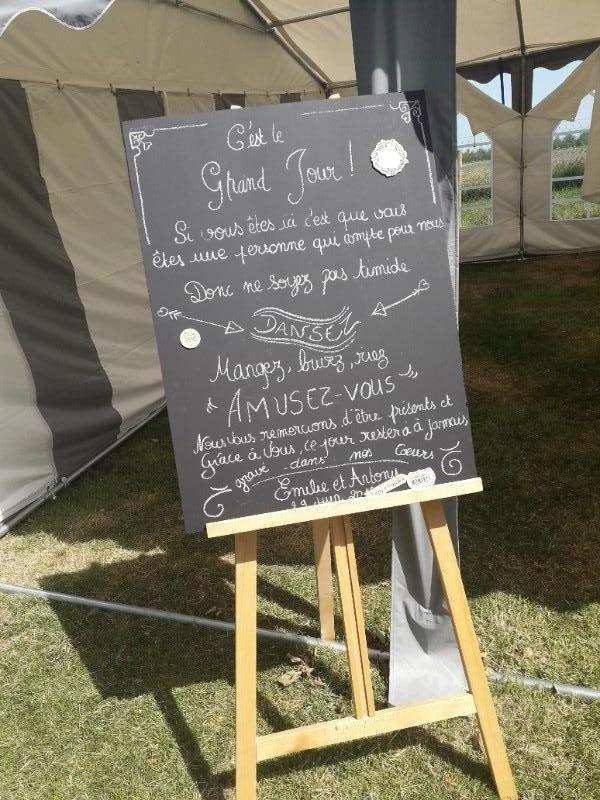 C'est le
Grand Jour !
Si vous êtes ici c'est que vous
êtes une personne qui compte pour nous
Donc ne soyez pas timide
DANSEZ
Mangez, buvez, riez
" AMUSEZ-VOUS "
Nous vous remercions d'être présents et
Grâce à Vous, ce jour restera à jamais
gravé dans nos Coeurs
Emilie et Antony